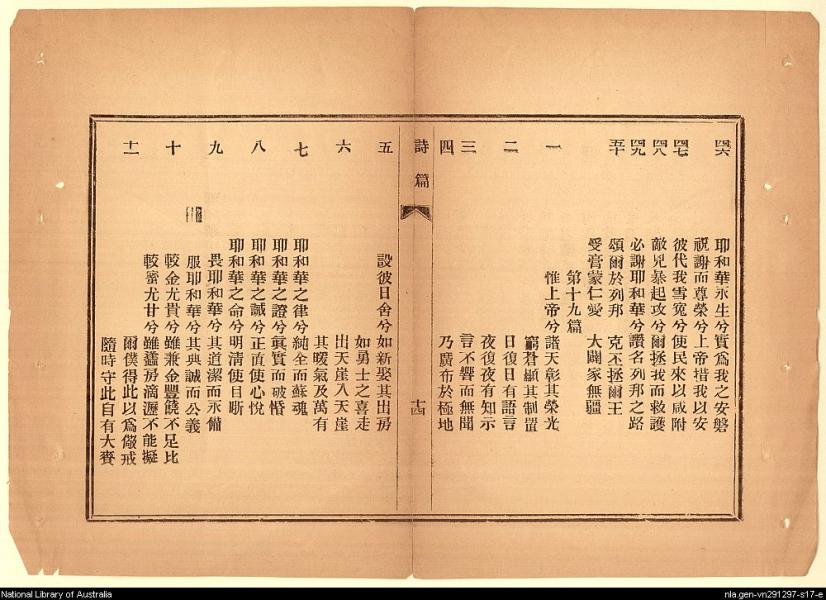 四六 耶和華永生兮實爲我之安磐
祝謝而尊榮兮上帝措我以安
四七 彼代我雪寃兮使民來以咸附
四八 敵兇暴起攻兮爾拯我而救護
四九 必謝耶和華兮讚名列邦之路
五十 頌爾於列邦 克丕拯爾王
受膏蒙仁愛 大闢家無疆
第十九篇
一 惟上帝兮諸天彰其榮光
窮蒼顯其制置
二 日復日有語言
夜復夜有知示
三 言不響而無聞
四 乃廣布於極地
詩篇 十四
五 設彼日舍兮如新娶其出房
如勇士之喜走
六 出天崖入天崖
其暖氣及萬有
七 耶和華之律兮純全而蘇魂
耶和華之證兮眞實而破惛
八 耶和華之誡兮正直使心悅
耶和華之命兮明清使目晰
九 畏耶和華兮其道潔而永備
服耶和華兮其典誠而公義
十 較金尤貴兮雖兼金豐饒不足比
較蜜尤甘兮雖蠭房滴瀝不能擬
十一 爾僕得此以爲儆戒
隨時守此自有大賚
National Library of Australia
nla.gen-vn291297-s17-e